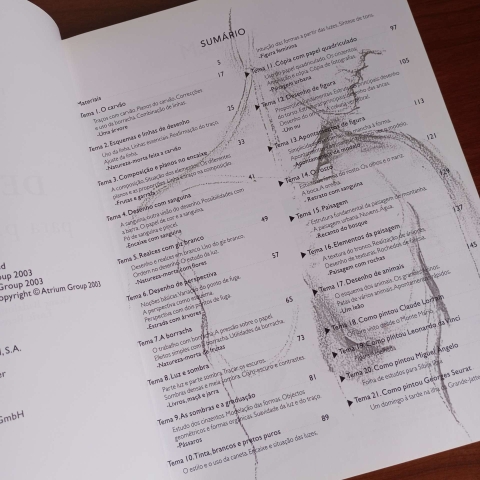 SUMÁRIO
Materiais
5
Tema 1. O carvão
17
Traços com carvão. Planos do carvão. Correcções
e uso da borracha. Combinação de linhas.
-Uma árvore
Tema 2. Esquemas e linhas de desenho
25
Uso da linha. Linhas essenciais. Reafirmação do traço.
Ajuste da linha.
-Natureza-morta feita a carvão
Tema 3. Composição e planos no encaixe
33
A composição. Situação dos elementos. Os diferentes
planos e as proporções. Linha e traço na composição.
-Frutas e garrafa
Tema 4. Desenho com sanguina
41
A sanguina, outra visão do desenho. Possibilidades com
a barra. O papel de cor e a sanguina.
Pó de sanguina e pincel.
-Encaixe com sanguina
Tema 5. Realces com giz branco
49
Desenho e realces em branco. Uso do giz branco.
Ordem no desenho. O estudo da luz.
-Natureza-morta com flores
Tema 6. Desenho de perspectiva
57
Noções básicas. Variação do ponto de fuga.
A perspectiva como esquema.
Perspectiva com dois pontos de fuga
-Estrada com árvores
Tema 7. A borracha
65
O trabalho com borracha. A pressão sobre o papel.
Efeitos simples com a borracha. Utilidades da borracha.
-Natureza-morta de frutas
Tema 8. Luz e sombra
73
Parte luz e parte sombra. Traçar os escuros.
Sombras densas e meia sombra. Claro-escuro e contrastes
-Livros, maçã e jarra
Tema 9. As sombras e a graduação
81
Estudo dos cinzentos. Modelação das formas. Objectos
geométricos e formas orgânicas. Suavidade da luz e do traço.
-Pássaros
Tema 10. Tinta, brancos e pretos puros
89
O estilo e o uso da caneta. Encaixe e situação das luzes.
intuição das formas a partir das luzes. Síntese de tons.
-Figura feminina
Tema 11. Cópia com papel quadriculado
97
Uso do papel quadriculado. Os cinzentos.
Ampliação e cópia. Cópia de fotografias
-Paisagem urbana
Tema 12. Desenho de figura
105
-Um nu
Tema 13. Apontamentos de figura
113
Tema 14. O rosto
121
Estrutura do rosto. Os olhos e o nariz.
A boca. A orelha.
-Retrato com sanguina
Tema 15. Paisagem
129
Estrutura fundamental da paisagem de montanha.
A paisagem urbana. Nuvens. Água.
-Recanto do bosque
Tema 16. Elementos da paisagem
137
A textura do tronco. Realização de árvores.
Desenho de texturas. Rochedos de falésia.
-Paisagem com rochas
Tema 17. Desenho de animais
145
O esquema dos animais. Os grandes felinos.
Patas de vários animais. Apontamentos
-Um leão
Tema 18. Como pintou Claude Lorrain
O Tibre visto desde o Monte Mario
Tema 19. Como pintou Leonardo da Vinci
Tema 20. Como pintou Miguel Ângelo
Folha de estudos para Sibila Líbia
Tema 21. Como pintou Georges Seurat.
Um domingo à tarde na ilha da Grande-Jatte
roup 2003
Group 2003
Copyright © Atrium Group 2003
, S.A.
GmbH